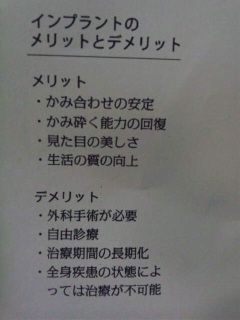 インプラントの
メリットとデメリット
メリット
・かみ合わせの安定
・かみ砕く能力の回復
・見た目の美しさ
・生活の質の向上
デメリット
・外科手術が必要
・自由診療
・治療期間の長期化
・全身疾患の状態によ
っては治療が不可能